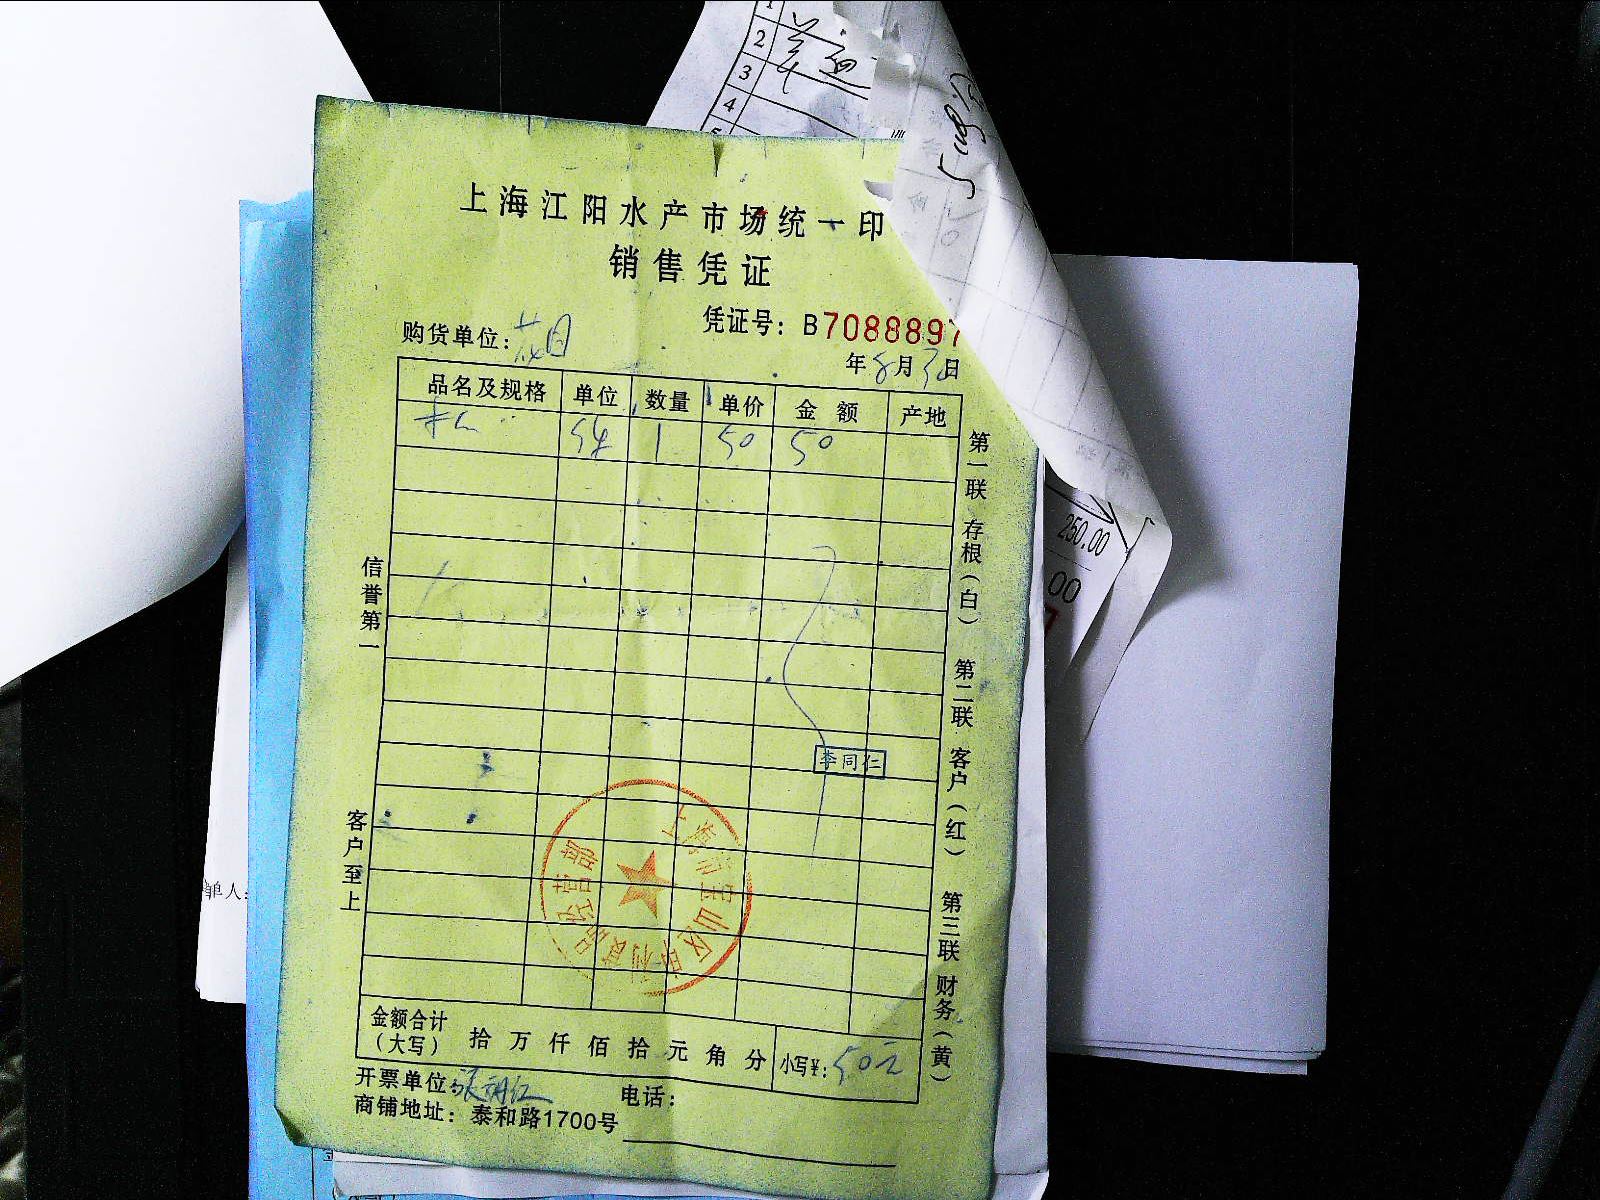 1
2
3
4
5
上海江阳水产市场统一印
销售凭证
凭证号：B7088897
购货单位：花月
年8月30日
品名及规格 单位 数量 单价 金额 产地
1 50 50
第一联 存根（白） 第二联 客户（红） 第三联 财务（黄）
信誉第一 客户至上
250.00
00
李同仁
上海市宝山区
经营部
金额合计（大写） 拾 万 仟 佰 拾 元 角 分 小写¥：50元
开票单位：
电话：
商铺地址：泰和路1700号
单人：